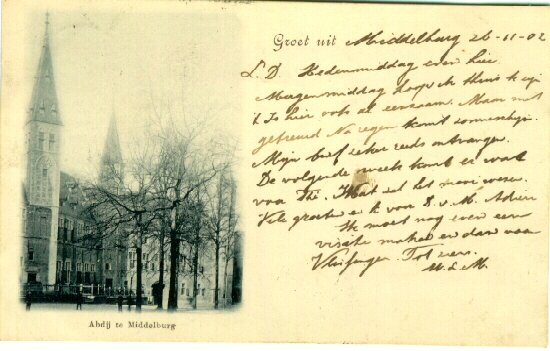 Groet uit Middelburg 26-11-02
L. D. Hedenmiddag even hier.
Morgenmiddag hoop ik thuis te zijn
't Is hier ook al eenzaam. Maar niet
getreurd Na regen komt zonneschijn.
Mijn brief zeker reeds ontvangen.
De volgende week komt er wat
voor Zal het mooi wezen.
Vele groeten k. voor S. v. M.
Ik moet nog even een
visite maken en dan naar
Vlissingen Tot ziens.
Abdij te Middelburg